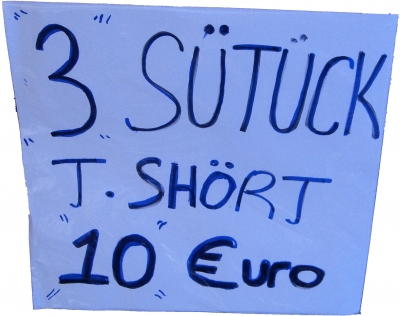 "3" SÜTÜCK
T. SHÖRT
"10" Euro